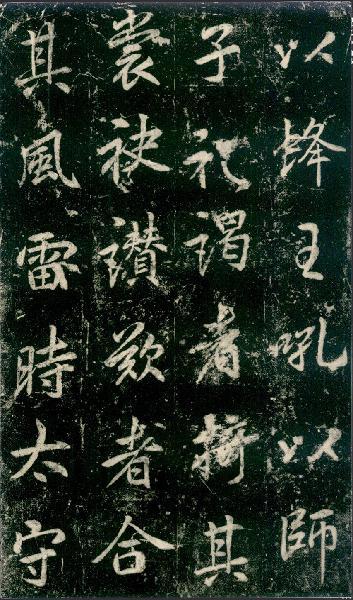 以蜂王吼以師
子礼謁者擠其
裳袂讃歎者合
其風雷時太守